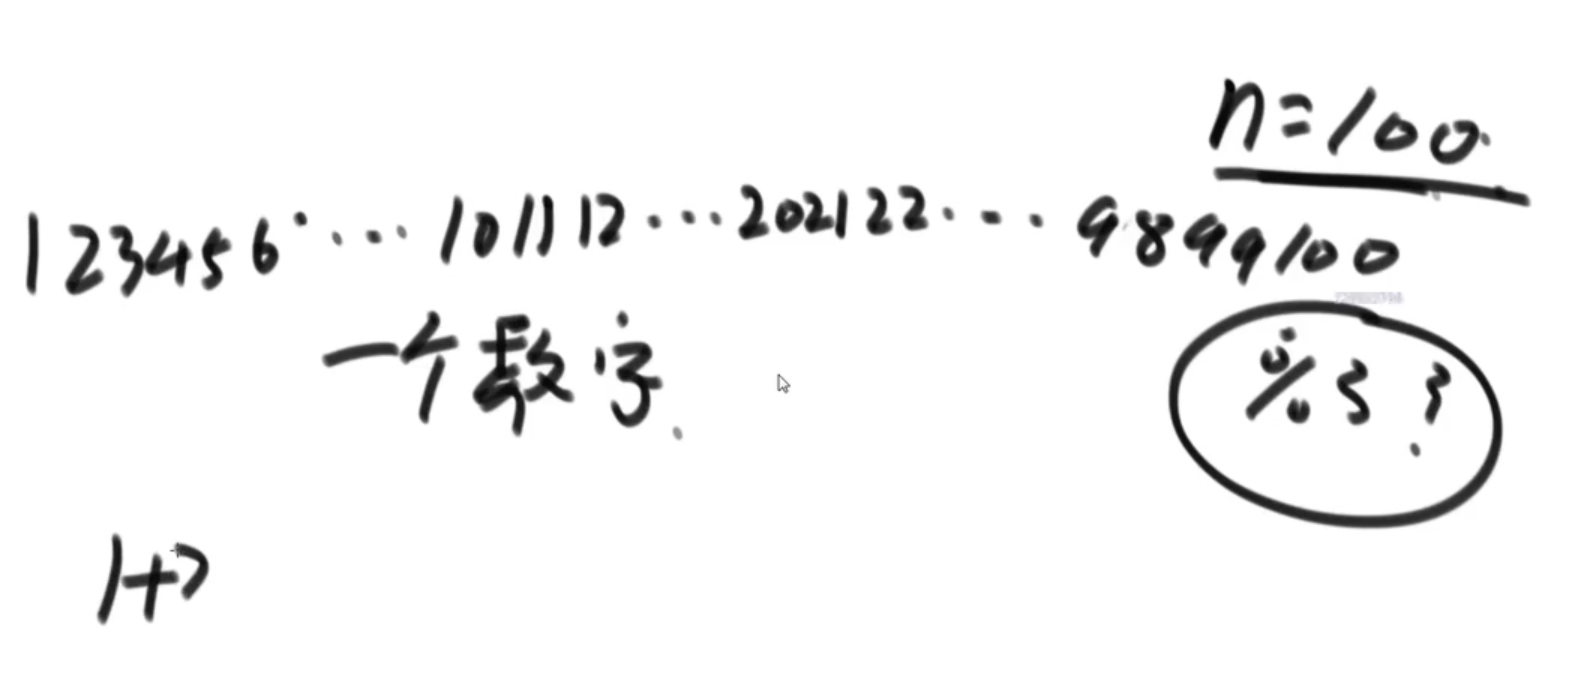 n=100
123456...101112...202122...9899100
一个数字
%3?
1+2